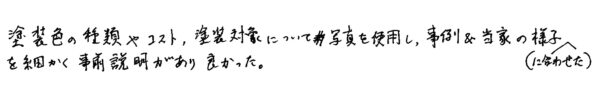 塗装色の種類やコスト,塗装対象について写真を使用し,事例&当家の様子(に合わせた)
を細かく事前説明があり良かった。